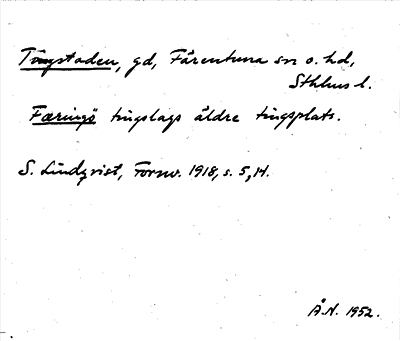 Tingstaden, gd, Färentuna sn o. hd,
Sthlms l.
Færingö tingslags äldre tingsplats.
S. Lindqvist, Fornv. 1918, s. 5, 14.
Å.N. 1952.